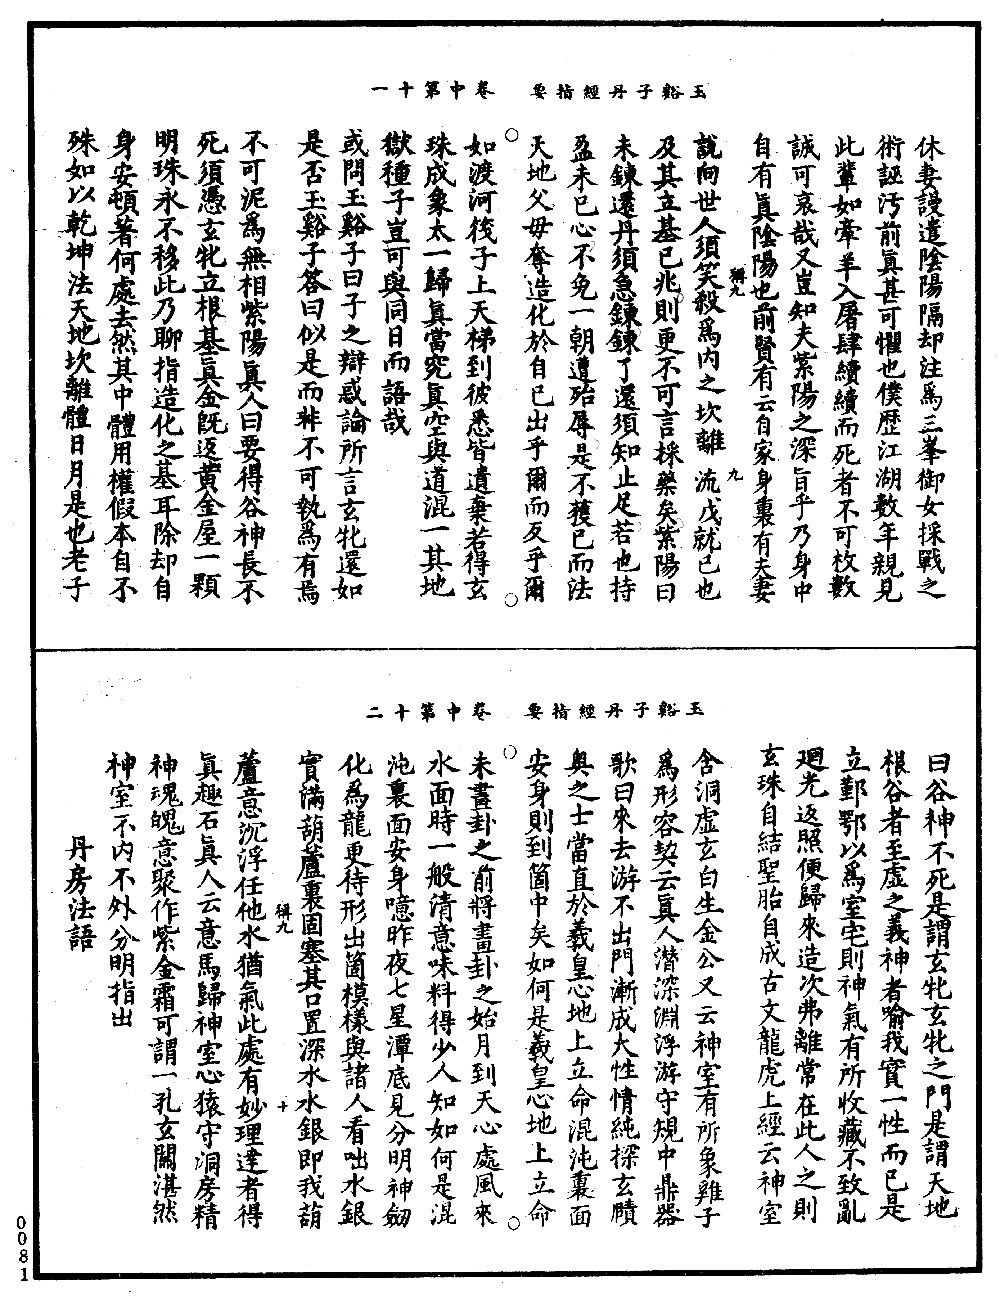 玉谿子丹經指要　卷中第十一
休妻謾遣陰陽隔却注爲三峯御女採戰之
術誣汚前眞甚可懼也僕歷江湖數年親見
此輩如牽羊入屠肆續續而死者不可枚數
誠可哀哉又豈知夫紫陽之深旨乎乃身中
自有眞陰陽也前賢有云自家身裏有夫妻
稱九
九
說向世人須笑殺爲內之坎離流戊就已也
及其立基已兆則更不可言採藥矣紫陽曰
未鍊還丹須急鍊鍊了還須知止足若也持
盈未已心不免一朝遭殆辱是不獲已而法
天地父母奪造化於自已出乎爾而反乎爾
如渡河筏子上天梯到彼悉皆遺棄若得玄
珠成象太一歸眞當究眞空與道混一其地
獄種子豈可與同日而語哉
或問玉谿子曰子之辯惑論所言玄牝還如
是否玉谿子答曰似是而非不可執爲有焉
不可泥爲無相紫陽眞人曰要得谷神長不
死須憑玄牝立根基眞金旣返黃金屋一顆
明珠永不移此乃聊指造化之基耳除却自
身安頓著何處去然其中體用權假本自不
殊如以乾坤法天地坎離體日月是也老子
玉谿子丹經指要　卷中第十二
曰谷神不死是謂玄牝玄牝之門是謂天地
根谷者至虛之義神者喻我實一性而已是
立鄞鄂以爲室宅則神氣有所收藏不致亂
廻光返照便歸來造次弗離常在此人之則
玄珠自結聖胎自成古文龍虎上經云神室
含洞虛玄白生金公又云神室有所象雞子
爲形容契云眞人潜深淵浮游守規中鼎器
歌曰來去游不出門漸成大性情純探玄賾
奥之士當直於羲皇心地上立命混沌裏面
安身則到箇中矣如何是羲皇心地上立命
未畫卦之前將畫卦之始月到天心處風來
水面時一般清意味料得少人知如何是混
沌裏面安身噫昨夜七星潭底見分明神劒
化爲龍更待形出箇模樣與諸人看咄水銀
實滿葫蘆裏固塞其口置深水水銀即我葫
稱九
十
蘆意沉浮任他水猶氣此處有妙理達者得
眞趣石眞人云意馬歸神室心猿守洞房精
神魂魄意聚作紫金霜可謂一孔玄關湛然
神室不內不外分明指出
丹房法語
0081